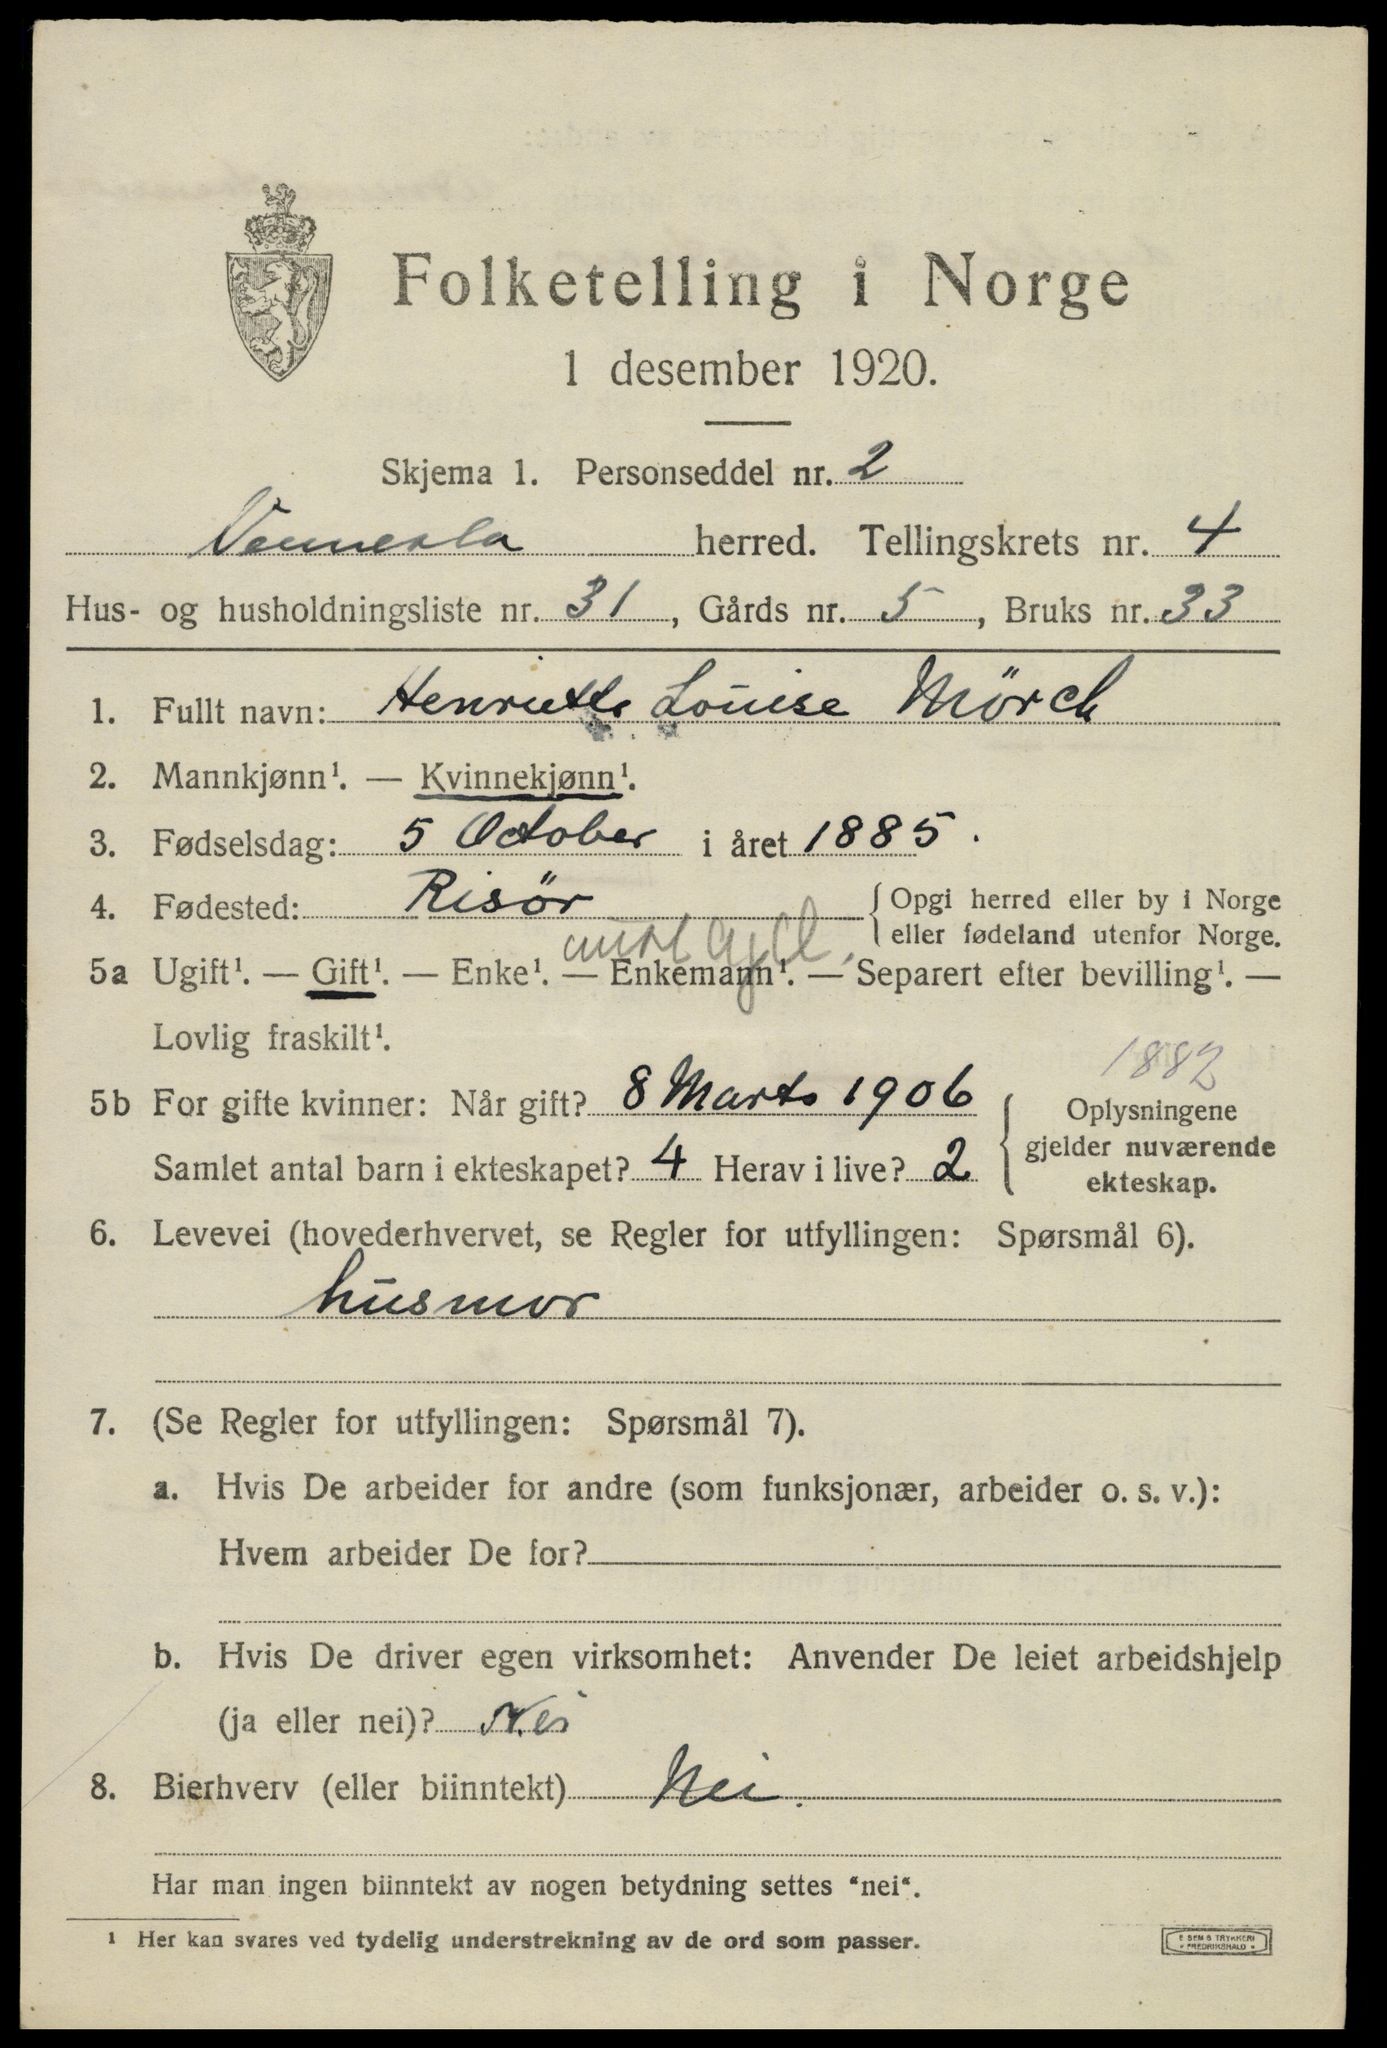 Folketelling i Norge
1 desember 1920.
Skjema 1. Personseddel nr. 2
Vennesla herred. Tellingskrets nr. 4
Hus- og husholdningsliste nr. 31, Gårds nr. 5, Bruks nr. 33
1. Fullt navn: Henriette Louise Mörch
2. Mannkjønn¹. — Kvinnekjønn¹.
3. Fødselsdag: 5 October i året 1885.
4. Fødested: Risör { Opgi herred eller by i Norge
eller fødeland utenfor Norge.
5a Ugift¹. — Gift¹. — Enke¹. — Enkemann¹. — Separert efter bevilling¹. —
Lovlig fraskilt¹.
1882
5b For gifte kvinner: Når gift? 8 Marts 1906 { Oplysningene
gjelder nuværende
Samlet antal barn i ekteskapet? 4 Herav i live? 2
ekteskap.
6. Levevei (hovederhvervet, se Regler for utfyllingen: Spørsmål 6).
husmor
7. (Se Regler for utfyllingen: Spørsmål 7).
a. Hvis De arbeider for andre (som funksjonær, arbeider o. s. v.):
Hvem arbeider De for?
b. Hvis De driver egen virksomhet: Anvender De leiet arbeidshjelp
(ja eller nei)? Nei
8. Bierhverv (eller biinntekt) Nei.
Har man ingen biinntekt av nogen betydning settes "nei".
¹ Her kan svares ved tydelig understrekning av de ord som passer.
E SEM S TRYKKERI
FREDRIKSHALD